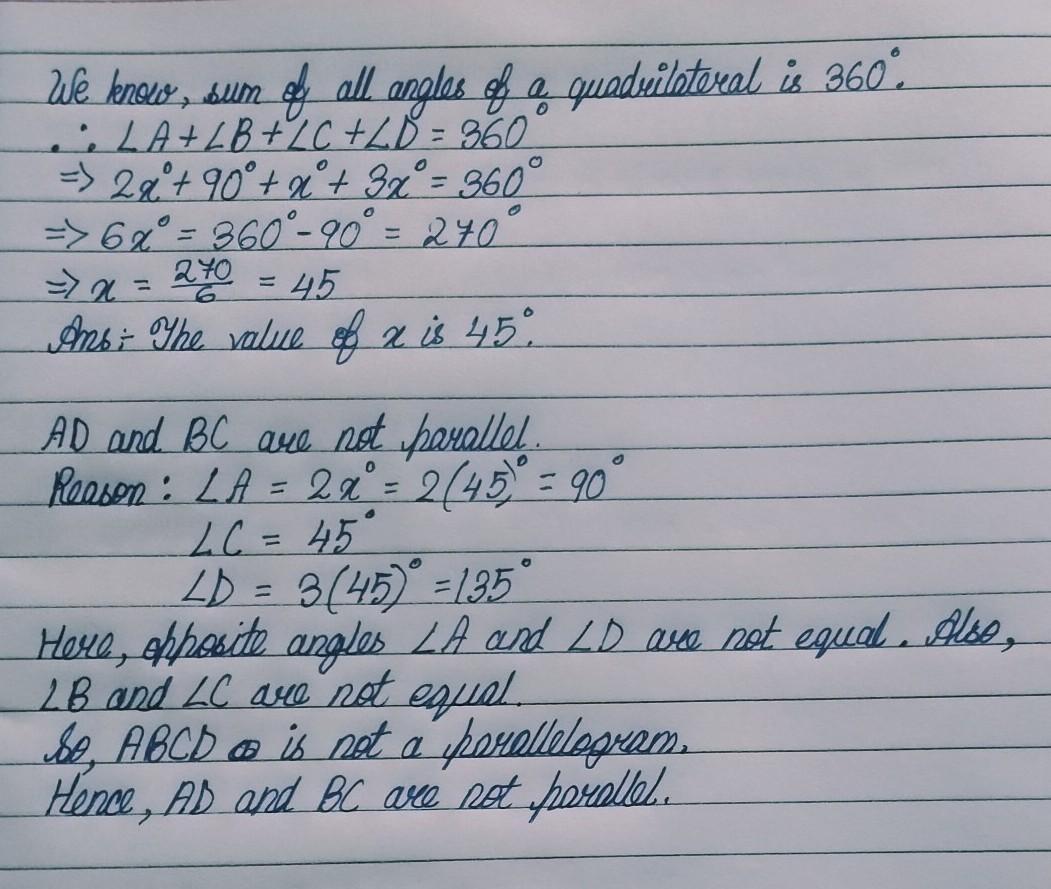 We know, sum of all angles of a quadrilateral is 360°.
∴ ∠A + ∠B + ∠C + ∠D = 360°
=> 2x° + 90° + x° + 3x° = 360°
=> 6x° = 360° - 90° = 270°
=> x = 270/6 = 45
Ans:- The value of x is 45°.
AD and BC are not parallel.
Reason : ∠A = 2x° = 2(45)° = 90°
∠C = 45°
∠D = 3(45)° = 135°
Here, opposite angles ∠A and ∠D are not equal. Also,
∠B and ∠C are not equal.
So, ABCD is not a parallelogram.
Hence, AD and BC are not parallel.